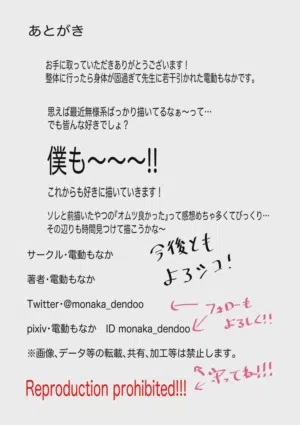 あとがき
お手に取っていただきありがとうございます！
整体に行ったら身体が固過ぎて先生に若干引かれた電動もなかです。
思えば最近無様系ばっかり描いてるなぁ～って…
でも皆んな好きでしょ？
僕も～～～!!
これからも好きに描いていきます！
ソレと前描いたやつの「オムツ良かった」って感想めちゃ多くてびっくり…
その辺りも時間見つけて描こうかな～
サークル・電動もなか
今後とも
よろシコ！
著者・電動もなか
Twitter・@monaka_dendoo
フォローも
よろしく!!
pixiv・電動もなか ID monaka_dendoo
※画像、データ等の転載、共有、加工等は禁止します。
Reproduction prohibited!!!
守ってね!!!